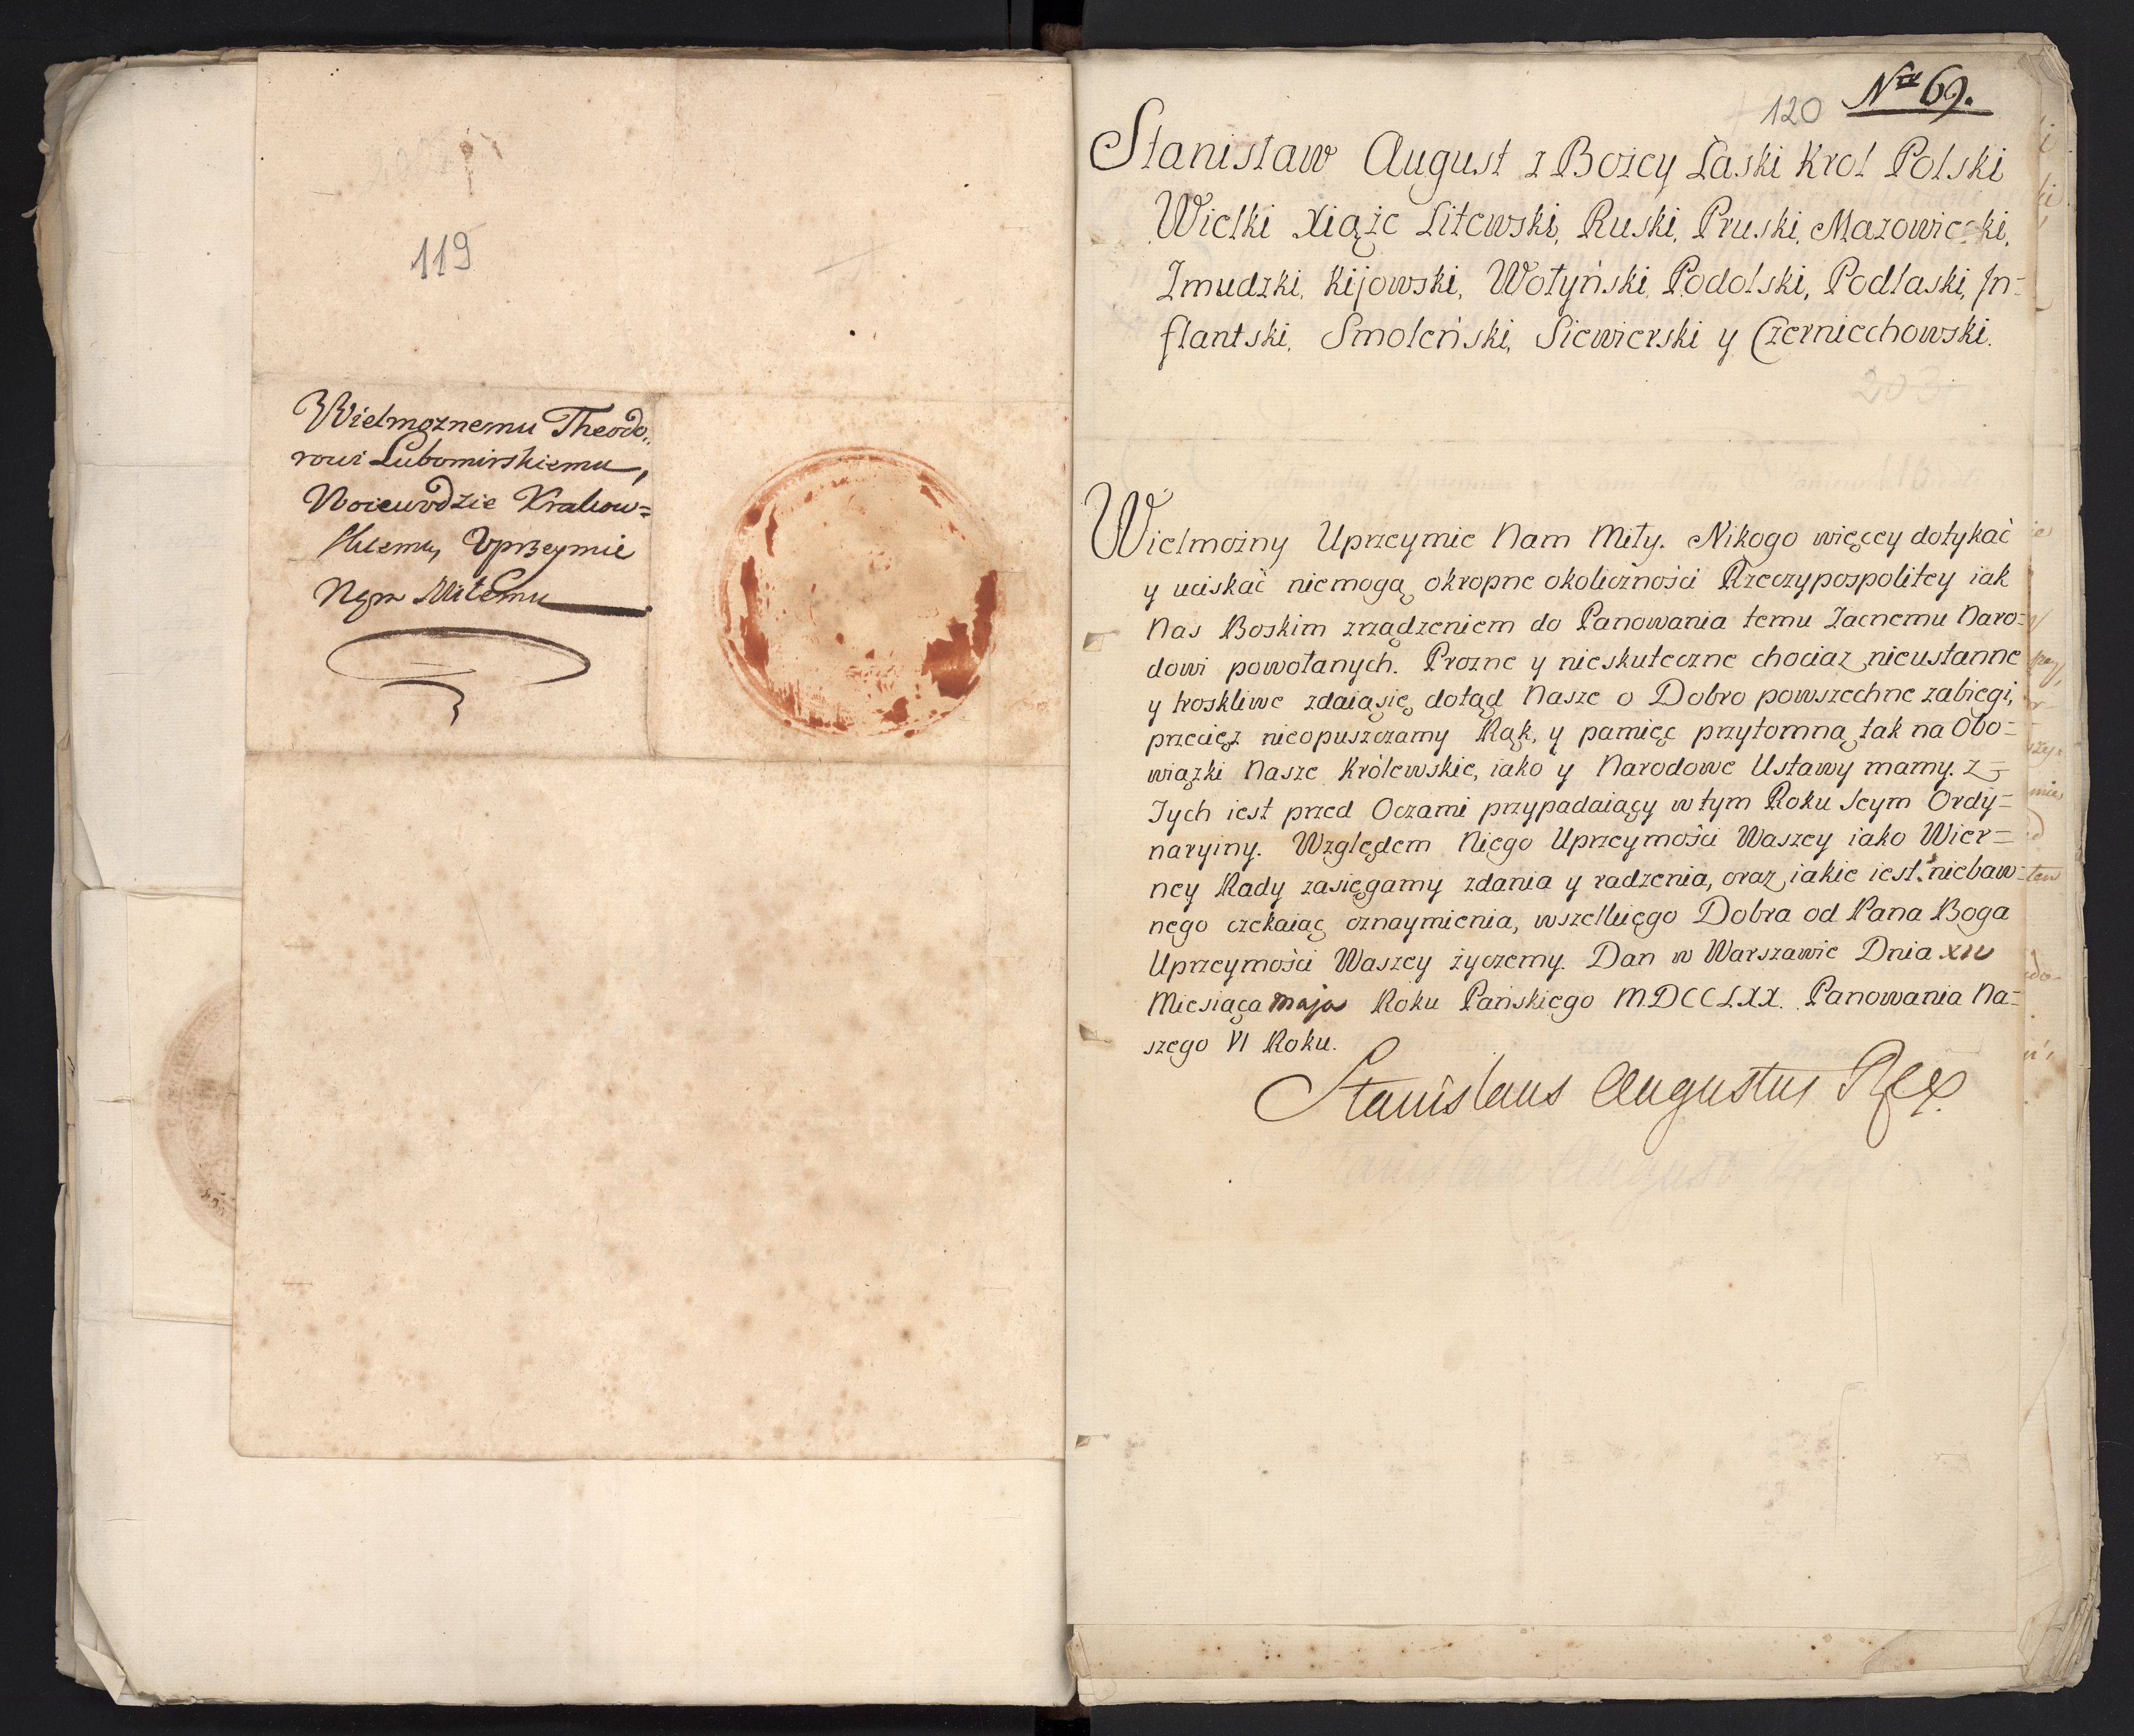 119
Wielmożnemu Theodo„
rowi Lubomirskiemu,
Woiewodzie Krakow=
skiemu, Uprzeymie
Nam Miłemu
120
Nro 69.
Stanisław August z Bożey Łaski Krol Polski
Wielki Xiąże Litewski, Ruski, Pruski, Mazowiecki,
Zmudzki, Kijowski, Wołyński, Podolski, Podlaski, In=
flantski, Smoleński, Siewierski y Czerniechowski.
203
Wielmożny Uprzeymie Nam Miły. Nikogo więcey dotykać
y uciskać niemogą okropne okoliczności Rzeczypospolitey iak
Nas Boskim zrządzeniem do Panowania temu Zacnemu Naro=
dowi powołanych. Prozne y nieskuteczne chociaz nieustanne
y troskliwe zdaią się dotąd Nasze o Dobro powszechne zabiegi,
przecięz nieopuszczamy Rąk, y pamięc przytomną tak na Obo=
wiązki Nasze Królewskie, iako y Narodowe Ustawy mamy. Z=
Tych iest przed Oczami przypadaiący w tym Roku Seym Ordy=
naryiny. Względem Niego Uprzeymości Waszey iako Wier=
ney Rady zasięgamy zdania y radzenia, oraz iakie iest niebaw=
nego czekaiąc oznaymienia, wszelkiego Dobra od Pana Boga
Uprzeymości Waszey życzemy. Dan w Warszawie Dnia
Miesiąca Maja Roku Pańskiego MDCCLXX. Panowania Na=
szego VI Roku.
Stanislaus Augustus Rex